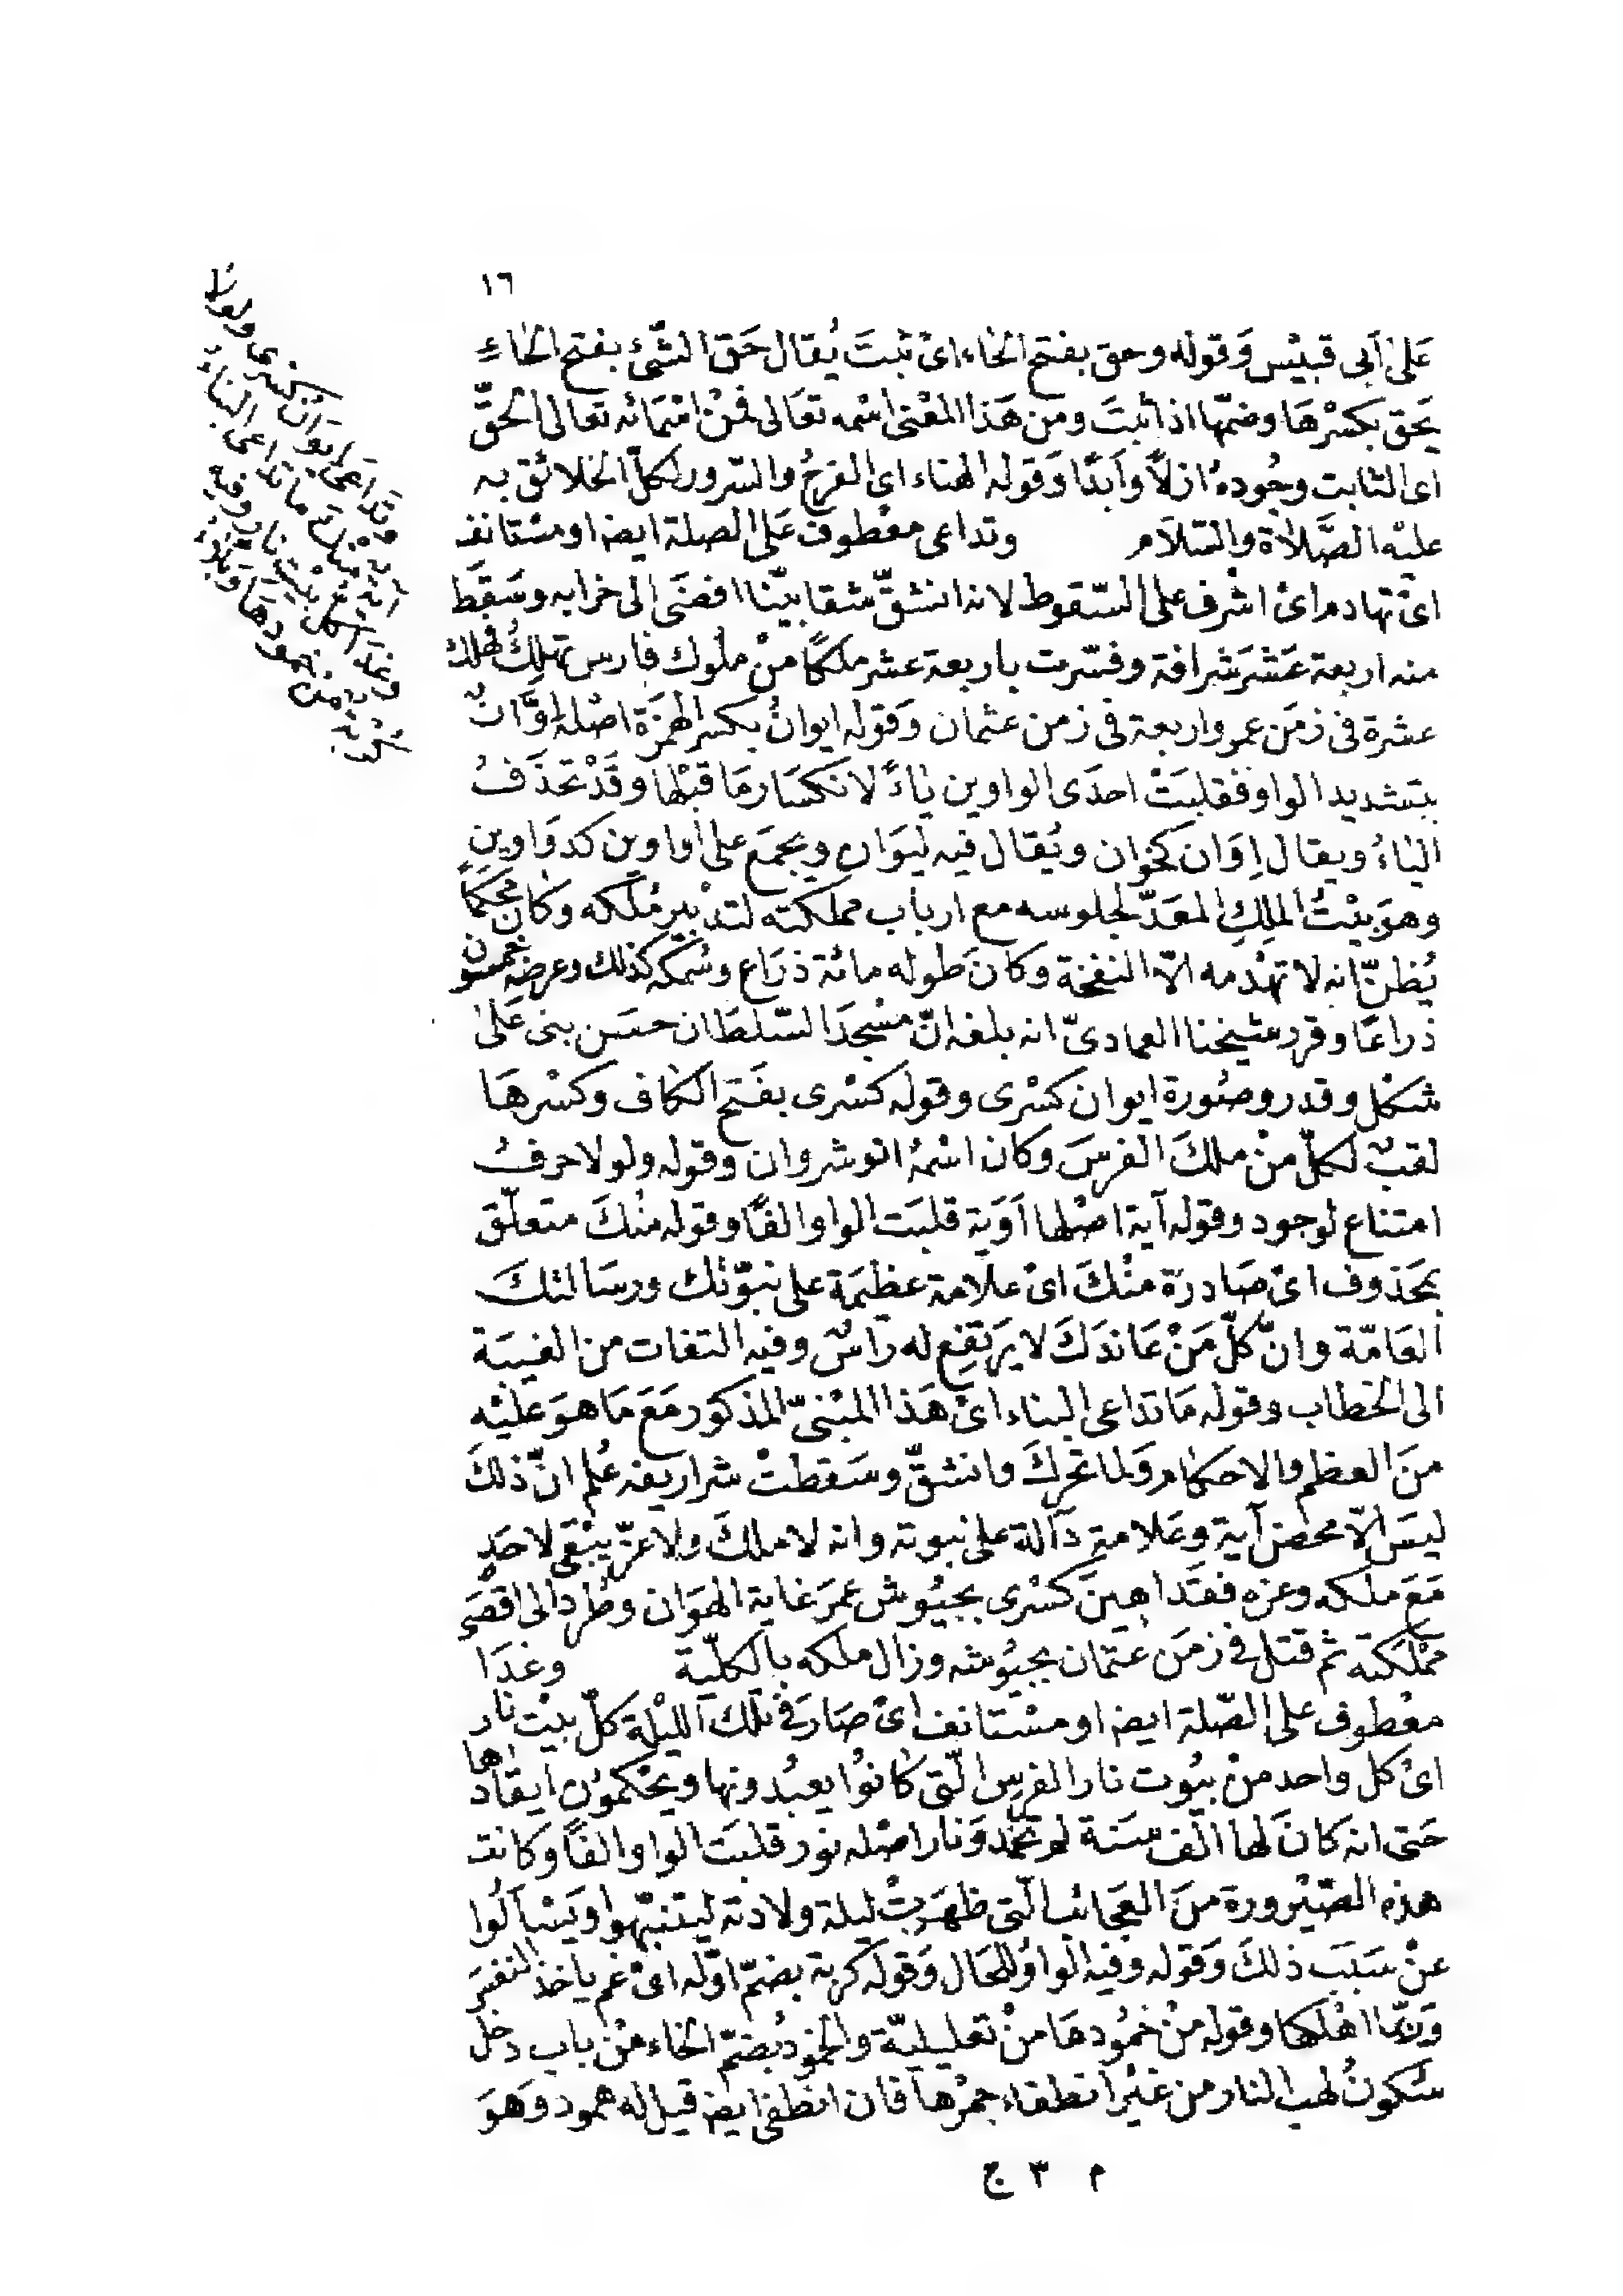 ١٦
على أبى قبيْس وَقوله وحق بفتح الحاء اىْ ثبتَ يُقال حَق الشّئ بفتح الحاءِ
يَحق بكسْرهَا وضمّها اذا ثبتَ ومن هَذا المعْنى اسْمه تعَالى فمنْ اسْمائه تعَالى الحقّ
اى الثابت وجُودهُ ازلًا وأبَدًا وَقوله الهناء اى الفرحُ والسّرور لكلّ الخلائق به
عليْه الصَّلاة والسّلاَم وتداعى معْطوف عَلى الصلة ايضا او مسْتانف
اىْ تهادم اىْ اشْرف على السّقوط لانه انشقّ شقا بيّنا افضَى الى خرابه وسَقط
منه اربعة عَشرَ شرافة وفسّرت باربعة عشر ملكًا منْ ملُوك فارس تهلِكُ فهلك
عشرة فى زمَن عمر واربعة فى زمن عثمان وَقوله ايوانُ بكسر الهمزَة اصْله اِوَّانٌ
بتشديد الواو فقلبَتْ احدَى الواوين ياءً لانكسَار مَا قبْلها وقَدْ تحذَفُ
الياءُ ويقال اِوَان كخوان ويُقال فيه ليَوَان ويجمَع على أواوين كدوَاوين
وهوَ بيْتُ الملِكِ المعَدّ لجلوسه مع ارباب مملكته لتدْبير مُلكه وكان محكمًا
يُظنّ انه لا تهْدمه الّا النفخة وكانَ طوله مائة ذرَاع وسُمكه كذلك وعرضه خمسون
ذراعًا وقرر شيخنا العمادىّ انه بلغه انّ مسْجدَ السّلطَان حسَن بنى عَلى
شكل وقدر وصُورة ايوان كسْرى وقوله كسْرى بفَتح الكاف وكسْرهَا
لقبٌ لكلّ منْ ملكَ الفرسَ وكان اسْمهُ انوشروان وقوله ولولا حرفُ
امتناع لوجود وقوله آية اصْلها أوَيَة قلبَت الواو الفًا وقوله منْكَ متعلّق
بمحَذوف اىْ صَادرَة منْكَ اىْ علاَمة عظيمَة على نبوّتك ورسَالتكَ
العَامّة وانّ كلّ مَنْ عَاندَكَ لا يرَتفع له راسٌ وفيه التفات من الغيبَة
الى الخطاب وقوله مَا تداعى البناء اىْ هَذا المبْنىّ المذكور مَعَ مَا هوَ عليْه
منَ العظم والاحكام وَلما تحركَ وانشقّ وسَقطتْ شراريفه عُلم انّ ذلكَ
ليسَ الّا محضَ آيةٍ وعَلامةٍ دَالة على نبوته وانه لا ملكَ ولا عزّ يبْقى لاحَدٍ
مَعَ ملكه وعزه فقَد اهينَ كسْرى بجيُوش عمرَ غاية الهوَان وطُرد الى اقصَى
ممْلكته ثم قتل فى زمَن عثمان بجيُوشه وزال ملكه بالكلّية وغدَا
معْطوف على الصّلة ايضا او مسْتانف اىْ صَارَ فى تلكَ الليْلة كلّ بيْت نار
اىْ كل واحد منْ بيُوت نار الفرس الّتى كانوُا يعبُدونها ويحْكموُن ايقادها
حَتى انه كَانَ لها الْف سَنة لم تخمد وَنار اصْله نور قلبَت الواو الفًا وكانت
هذه الصّيْرورة منَ العجَائب الّتى ظهَرتْ ليلة ولادته ليتنبّهوا ويَسْألُوا
عنْ سَبَب ذلكَ وَقوله وفيه الواوُ للحَال وَقوله كربة بضمّ اوّله اىْ غم ياخذ النفسَ
وَربّما اهْلكها وقوله منْ خمُودهَا منْ تعليليّة والخمُودُ بضمّ الخاء منْ باب دخل
سُكونُ لهب النار من غيْر انطفاء جمْرها فان انطفى ايضا قيل له همود وَهوَ
م ٣ ج
وتداعَى ايوَان كسْرى ولولا
آية منْك ما تداعى البناءُ
وغدَا كلّ بيْت نار وفيه
كُرْبة منْ خمُودهَا وَبَلاءُ